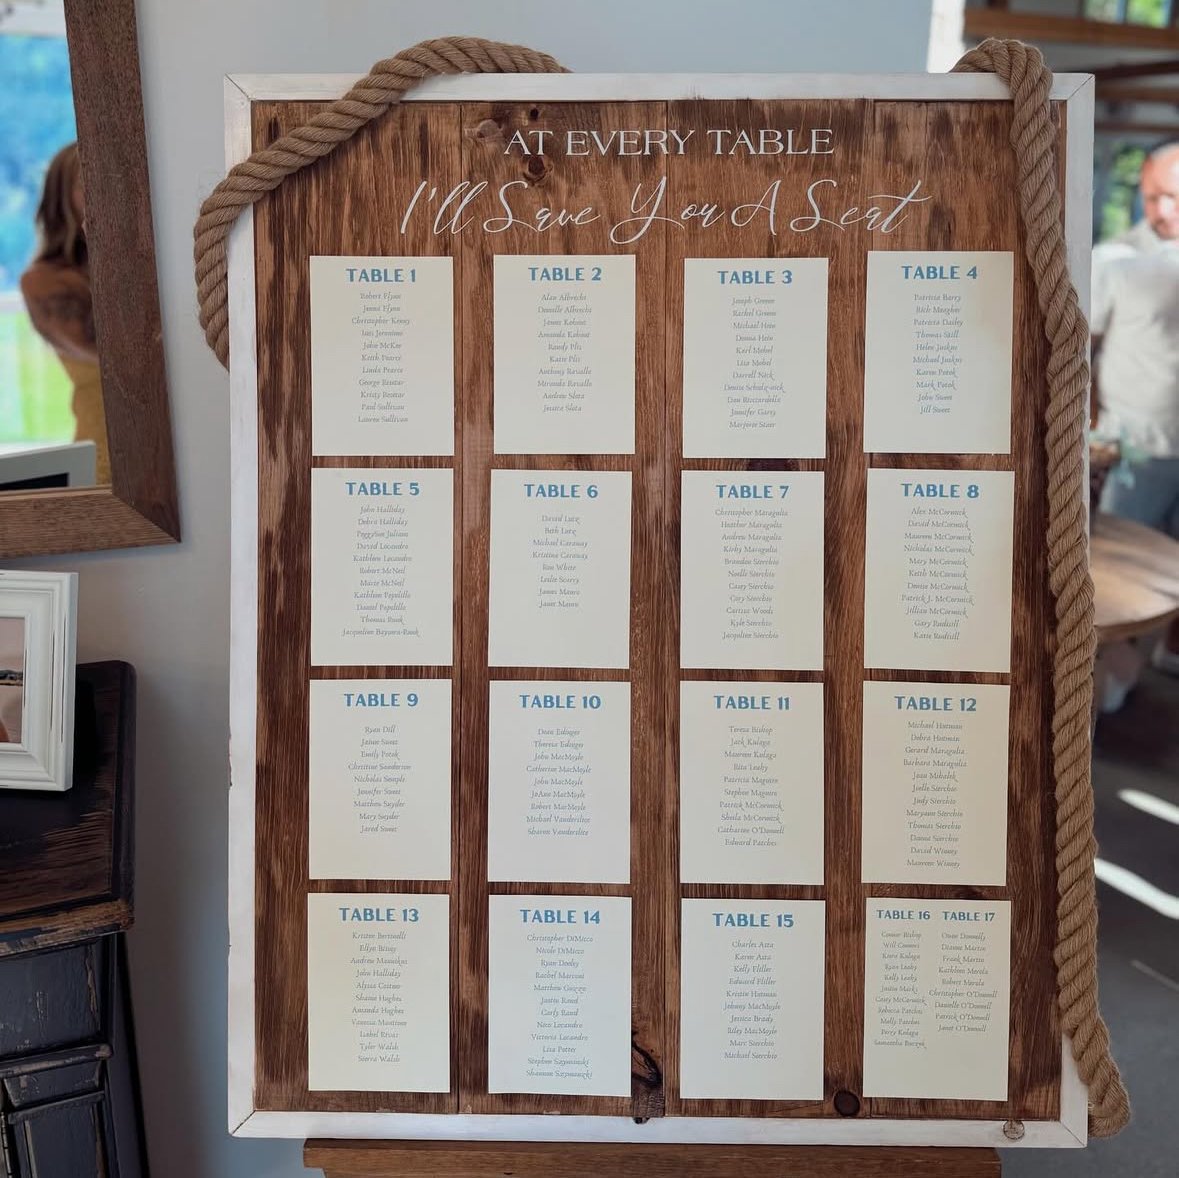 AT EVERY TABLE
I'll Save You A Seat
TABLE 1
Robert Flynn
Jenna Flynn
Christopher Kenny
Iain Jeronimo
John McKee
Keith Pearce
Linda Pearce
George Reottar
Kristy Reottar
Paul Sullivan
Lauren Sullivan
TABLE 2
Alan Albrecht
Danielle Albrecht
James Kohout
Amanda Kohout
Randy Plis
Katie Plis
Anthony Ravallo
Miranda Ravallo
Andrew Slota
Jessica Slota
TABLE 3
Joseph Greene
Rachel Greene
Michael Hein
Donna Hein
Karl Mobel
Lisa Mobel
Darrell Nick
Denise
Don Ricciardella
Jennifer Garry
Marjorie
TABLE 4
Patricia Barry
Rich Meagher
Patricia Dailey
Thomas Still
Helen Juskus
Michael Juskus
Karen Potok
Mark Potok
John Sweet
Jill Sweet
TABLE 5
John Halliday
Debra Halliday
Peggylun Juliano
David Locandro
Kathleen Locandro
Robert McNeil
Marie McNeil
Kathleen Popolillo
Daniel Popolillo
Thomas Rook
Jacqueline Bayowa-Rook
TABLE 6
David Lutz
Beth Lutz
Michael Caraway
Kristine Caraway
Ron White
Leslie Scarry
James Mauro
Janet Mauro
TABLE 7
Christopher Maragulia
Heather Maragulia
Andrew Maragulia
Kirby Maragulia
Brandon Sierchio
Noelle Sierchio
Casey Sierchio
Cory Sierchio
Curtiss Woods
Kyle Sierchio
Jacqueline Sierchio
TABLE 8
Alex McCormick
David McCormick
Maureen McCormick
Nicholas McCormick
Mary McCormick
Keith McCormick
Denise McCormick
Patrick J. McCormick
Jillian McCormick
Gary Rudisill
Katie Rudisill
TABLE 9
Ryan Dill
Jaime Sweet
Emily Potok
Christine Sanderson
Nicholas Semple
Jennifer Sweet
Matthew Snyder
Mary Snyder
Jared Sweet
TABLE 10
Dean Edinger
Theresa Edinger
John MacMoyle
Catherine MacMoyle
John MacMoyle
JoAnn MacMoyle
Robert MacMoyle
Michael Vanderslice
Sharon Vanderslice
TABLE 11
Teresa Bishop
Jack Kulaga
Maureen Kulaga
Rita Leahy
Patricia Maguire
Stephen Maguire
Patrick McCormick
Sheila McCormick
Catharine O'Donnell
Edward Patches
TABLE 12
Michael Hutman
Debra Hutman
Gerard Maragulia
Barbara Maragulia
Joan Mihalek
Joelle Sierchio
Jody Sierchio
Maryann Sierchio
Thomas Sierchio
Donna Sierchio
David Winney
Maureen Winney
TABLE 13
Kristen Bertinelli
Ellyn Binay
Andrew Manuikas
John Halliday
Alyssa Cutino
Shane Hughes
Amanda Hughes
Vanessa Martinez
Isabel Rivas
Tyler Walsh
Sierra Walsh
TABLE 14
Christopher DiMicco
Nicole DiMicco
Ryan Dooley
Rachel Marconi
Matthew
Justin Rand
Carly Rand
Nico Locandro
Victoria Locandro
Lisa Potter
Stephen Szymanski
Shannon Szymanski
TABLE 15
Charles Asta
Karen Asta
Kelly Fliller
Edward Fliller
Kristin Hutman
Johnny MacMoyle
Jessica Brady
Riley MacMoyle
Marc Sierchio
Michael Sierchio
TABLE 16
Connor Bishop
Will Connors
Kiera Kulaga
Ryan Leahy
Kelly Leahy
Justin Marks
Casey McCormick
Rebecca Patches
Molly Patches
Perry Kulaga
Samantha
TABLE 17
Owen Donnelly
Dianne Martin
Frank Martin
Kathleen Merola
Robert Merola
Christopher O'Donnell
Danielle O'Donnell
Patrick O'Donnell
Janet O'Donnell